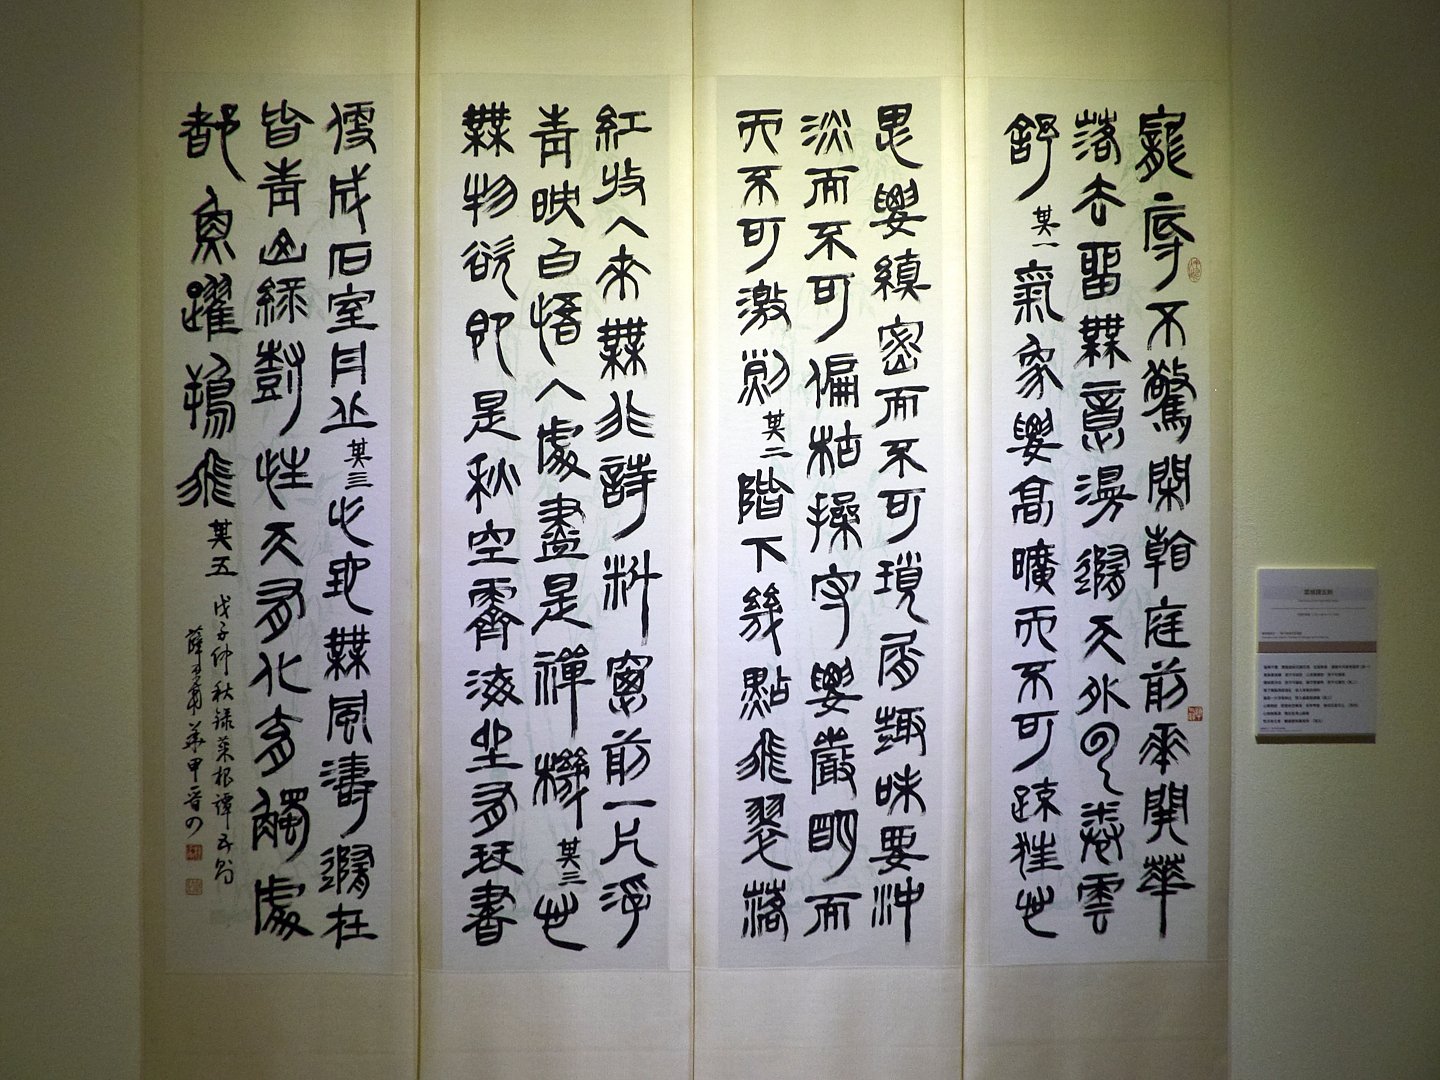 寵辱不驚閑看庭前華開華
落去留無意漫隨天外雲卷雲
舒其一氣象要高曠而不可疏狂心
思要縝密而不可瑣屑趣味要沖
淡而不可偏枯操守要嚴明而
而不可激烈其二階下幾點飛翠落
紅收入來無非詩料窗前一片浮
青映白悟入處盡是禪機其三心
無物欲即是秋空霽海坐有琴書
便成石室丹丘其亖心地無風濤隨在
皆青山綠樹性天有化育觸處
都魚躍鳶飛其五戊子仲秋錄菜根譚五則